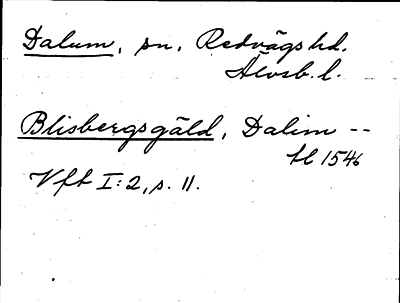 Dalum, sn, Redvägs hd.
Älvsb. l.
Blisbergsgäld, Dalim --
tl 1546
Vft I:2, s. 11.